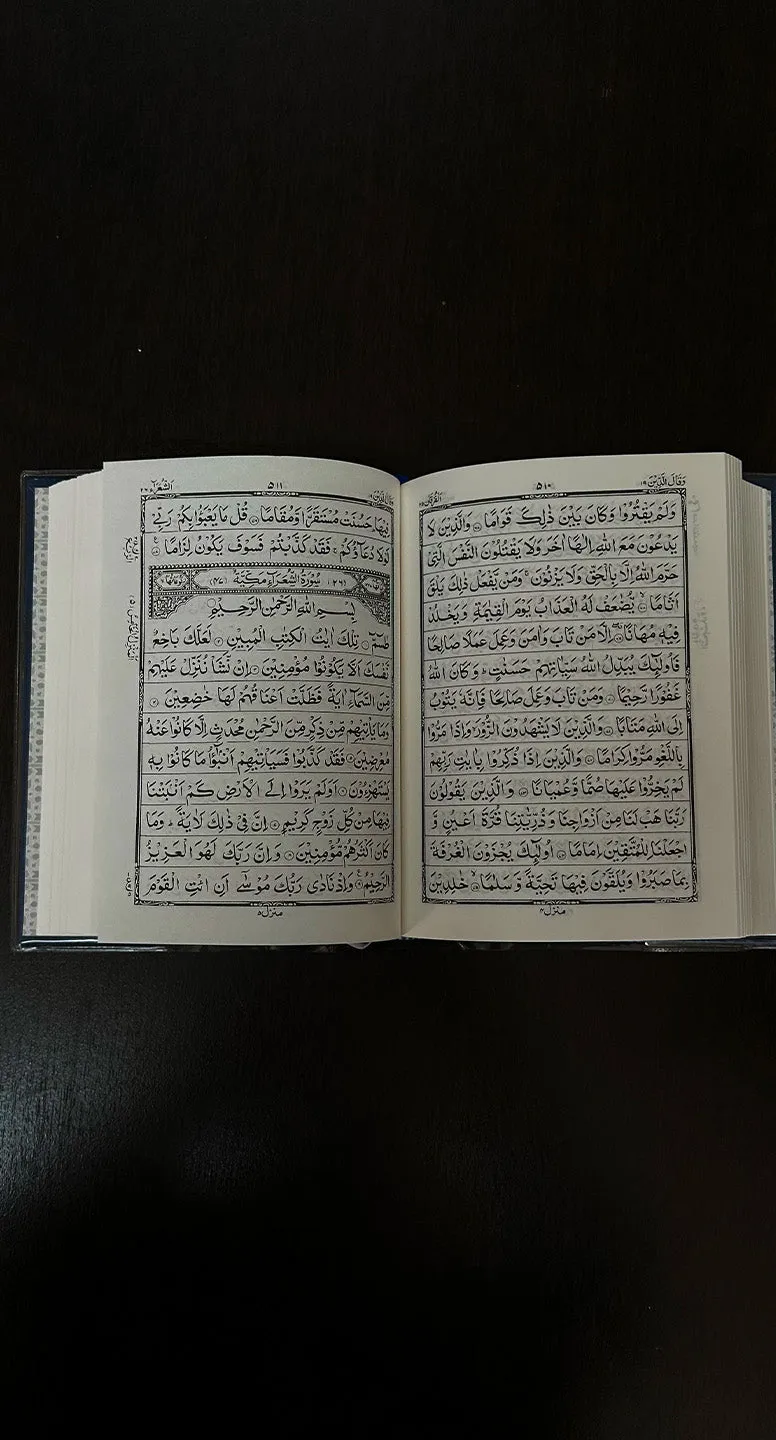 وَقَالَ الَّذِيْنَ ١٩
٥١٠
الْفُرْقَان ٢٥
وَلَمْ يَقْتُرُوْا وَكَانَ بَيْنَ ذٰلِكَ قَوَامًا ۞ وَالَّذِيْنَ لَا
يَدْعُوْنَ مَعَ اللّٰهِ اِلٰهًا اٰخَرَ وَلَا يَقْتُلُوْنَ النَّفْسَ الَّتِيْ
حَرَّمَ اللّٰهُ اِلَّا بِالْحَقِّ وَلَا يَزْنُوْنَ ۚ وَمَنْ يَّفْعَلْ ذٰلِكَ يَلْقَ
اَثَامًا ۞ يُّضٰعَفْ لَهُ الْعَذَابُ يَوْمَ الْقِيٰمَةِ وَيَخْلُدْ
فِيْهٖ مُهَانًا ۞ اِلَّا مَنْ تَابَ وَاٰمَنَ وَعَمِلَ عَمَلًا صَالِحًا
فَاُولٰٓئِكَ يُبَدِّلُ اللّٰهُ سَيِّاٰتِهِمْ حَسَنٰتٍ ؕ وَكَانَ اللّٰهُ
غَفُوْرًا رَّحِيْمًا ۞ وَمَنْ تَابَ وَعَمِلَ صَالِحًا فَاِنَّهٗ يَتُوْبُ
اِلَى اللّٰهِ مَتَابًا ۞ وَالَّذِيْنَ لَا يَشْهَدُوْنَ الزُّوْرَ ۙ وَاِذَا مَرُّوْا
بِاللَّغْوِ مَرُّوْا كِرَامًا ۞ وَالَّذِيْنَ اِذَا ذُكِّرُوْا بِاٰيٰتِ رَبِّهِمْ
لَمْ يَخِرُّوْا عَلَيْهَا صُمًّا وَّعُمْيَانًا ۞ وَالَّذِيْنَ يَقُوْلُوْنَ
رَبَّنَا هَبْ لَنَا مِنْ اَزْوَاجِنَا وَذُرِّيّٰتِنَا قُرَّةَ اَعْيُنٍ وَّ
اجْعَلْنَا لِلْمُتَّقِيْنَ اِمَامًا ۞ اُولٰٓئِكَ يُجْزَوْنَ الْغُرْفَةَ
بِمَا صَبَرُوْا وَيُلَقَّوْنَ فِيْهَا تَحِيَّةً وَّسَلٰمًا ۞ خٰلِدِيْنَ
منزل ٤
وَقَالَ الَّذِيْنَ ١٩
٥١١
الشُّعَرَآء ٢٦
فِيْهَا ؕ حَسُنَتْ مُسْتَقَرًّا وَّمُقَامًا ۞ قُلْ مَا يَعْبَؤُا بِكُمْ رَبِّيْ
لَوْلَا دُعَآؤُكُمْ ۚ فَقَدْ كَذَّبْتُمْ فَسَوْفَ يَكُوْنُ لِزَامًا ۞
(٢٦) سُوْرَةُ الشُّعَرَآءِ مَكِّيَّةٌ (٤٧)
بِسْمِ اللّٰهِ الرَّحْمٰنِ الرَّحِيْمِ
طٰسٓمّٓ ۞ تِلْكَ اٰيٰتُ الْكِتٰبِ الْمُبِيْنِ ۞ لَعَلَّكَ بَاخِعٌ
نَّفْسَكَ اَلَّا يَكُوْنُوْا مُؤْمِنِيْنَ ۞ اِنْ نَّشَاْ نُنَزِّلْ عَلَيْهِمْ
مِّنَ السَّمَآءِ اٰيَةً فَظَلَّتْ اَعْنَاقُهُمْ لَهَا خٰضِعِيْنَ ۞
وَمَا يَاْتِيْهِمْ مِّنْ ذِكْرٍ مِّنَ الرَّحْمٰنِ مُحْدَثٍ اِلَّا كَانُوْا عَنْهُ
مُعْرِضِيْنَ ۞ فَقَدْ كَذَّبُوْا فَسَيَاْتِيْهِمْ اَنْۢبٰٓؤُا مَا كَانُوْا بِهٖ
يَسْتَهْزِءُوْنَ ۞ اَوَلَمْ يَرَوْا اِلَى الْاَرْضِ كَمْ اَنْۢبَتْنَا
فِيْهَا مِنْ كُلِّ زَوْجٍ كَرِيْمٍ ۞ اِنَّ فِيْ ذٰلِكَ لَاٰيَةً ؕ وَمَا
كَانَ اَكْثَرُهُمْ مُّؤْمِنِيْنَ ۞ وَاِنَّ رَبَّكَ لَهُوَ الْعَزِيْزُ
الرَّحِيْمُ ۞ وَاِذْ نَادٰى رَبُّكَ مُوْسٰٓى اَنِ ائْتِ الْقَوْمَ
منزل ٥